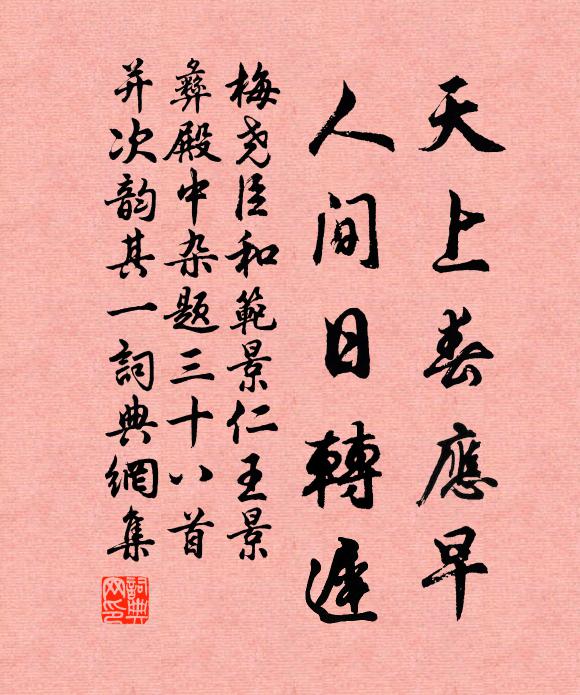 天上春應早
人间日轉遲
梅尧臣和範景仁王景
彝殿中杂题三十八首
并次韵其一詞典網集
詞典网印